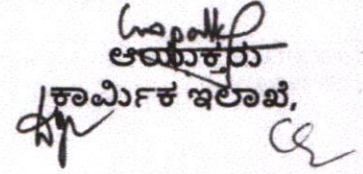 ಆಯುಕ್ತರು
ಕಾರ್ಮಿಕ ಇಲಾಖೆ,